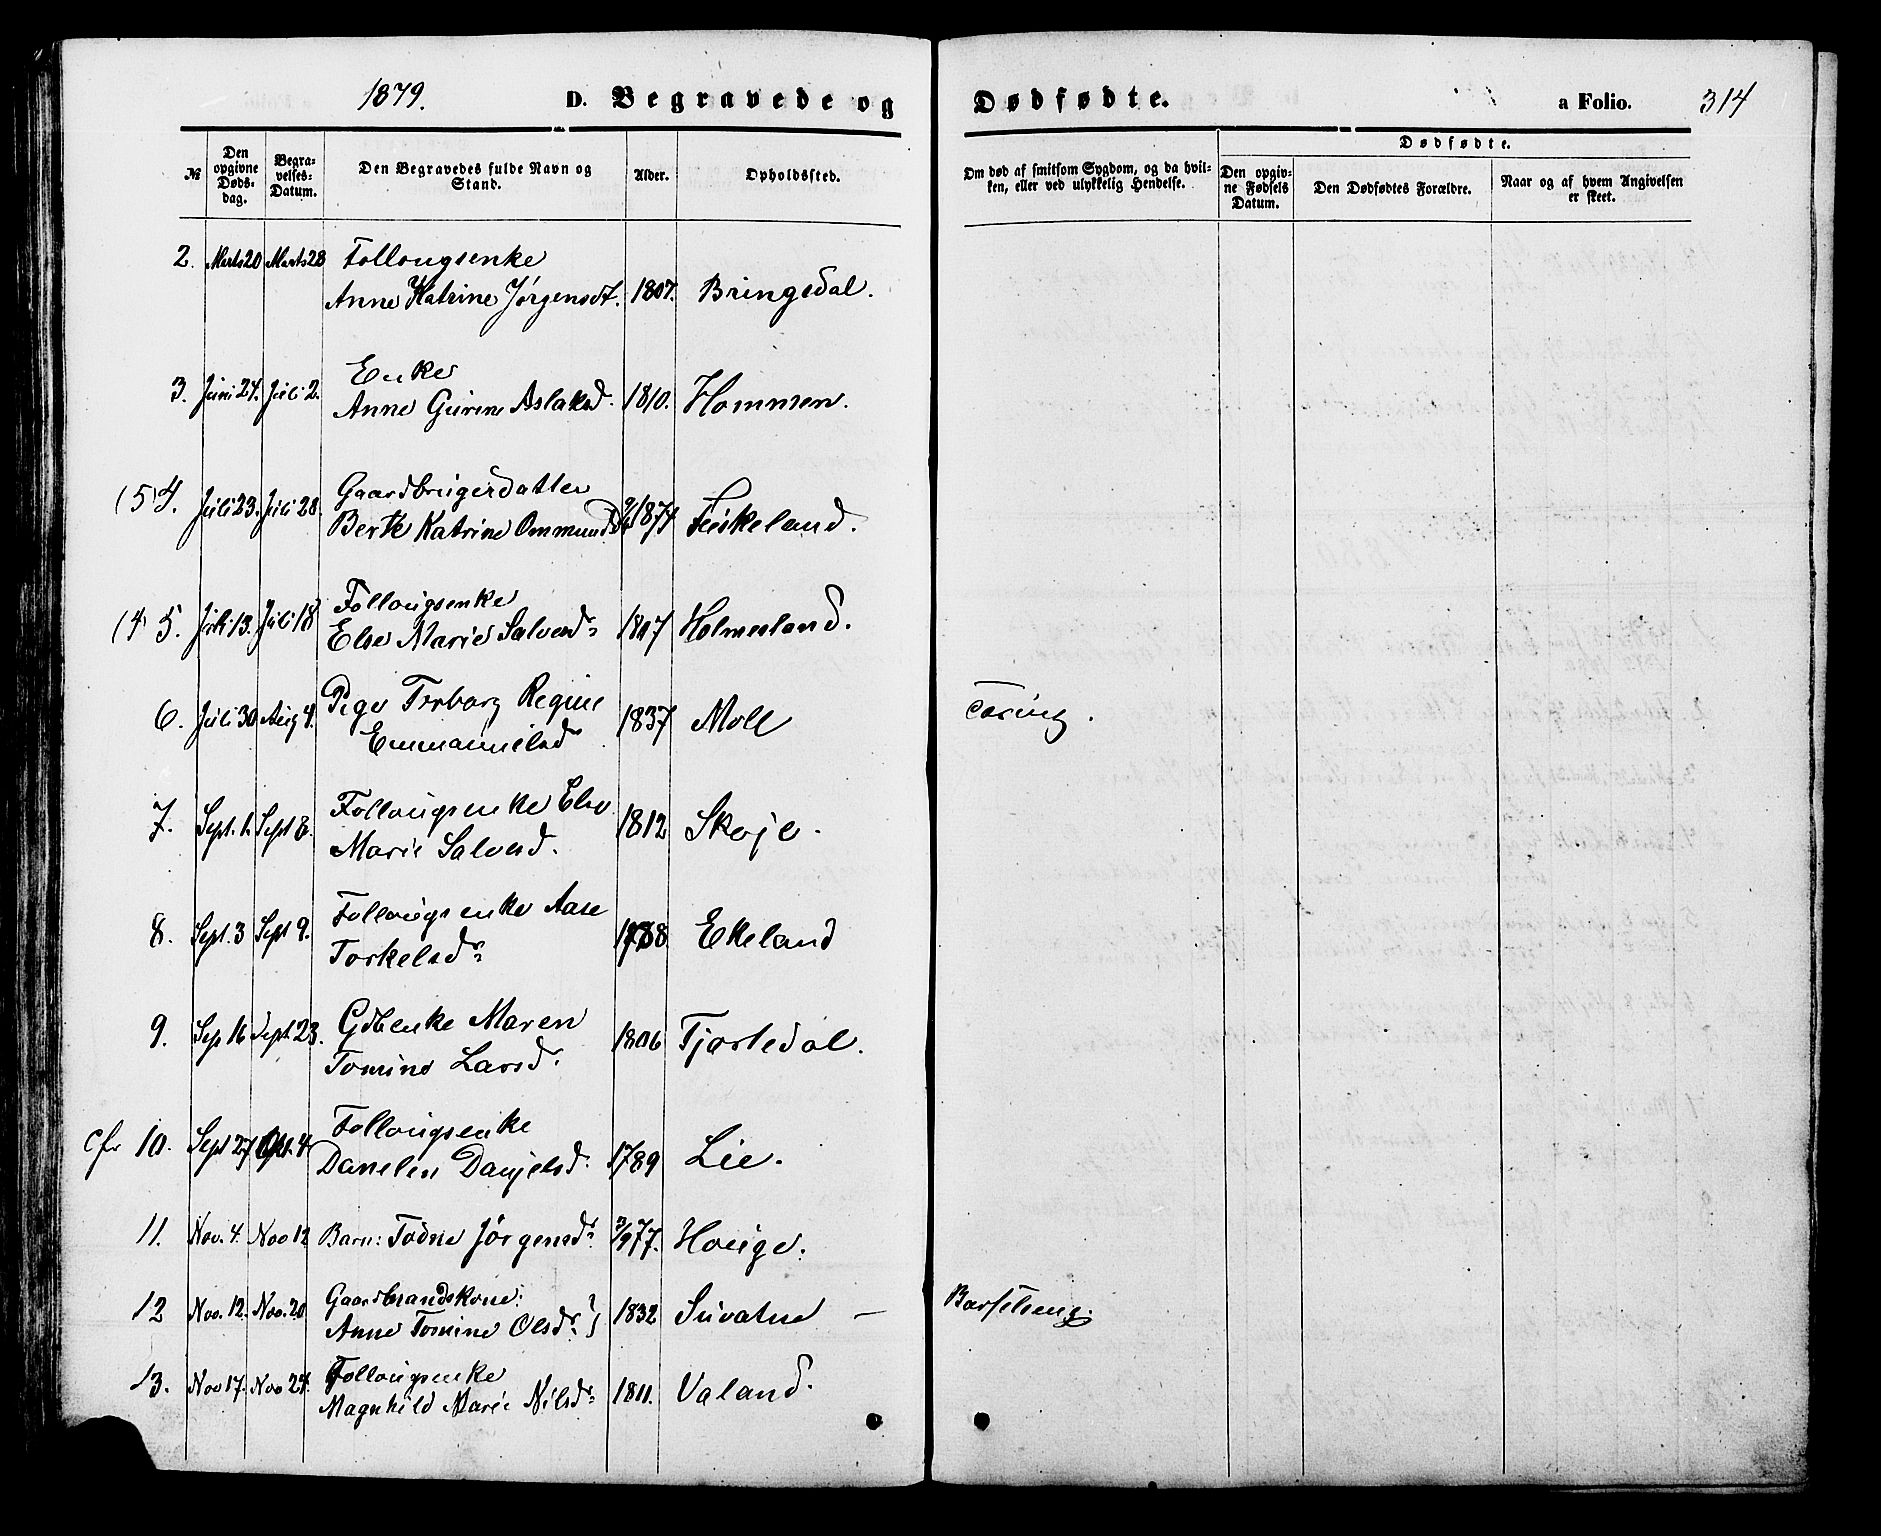 1879.
D. Begravede og Dødfødte.
a Folio. 314
№
Den opgivne Døds-dag.
Begra-velses-Datum.
Den Begravedes fulde Navn og Stand.
Alder.
Opholdssted.
Om død af smitsom Sygdom, og da hvil-ken, eller ved ulykkelig Hendelse.
Dødfødte.
Den opgiv-ne Fødsels Datum.
Den Dødfødtes Forældre.
Naar og af hvem Angivelsen er skeet.
2. Marts 20 Marts 28 Follougsenke
Anne Katrine Jørgensdt. 1807. Bringsdal.
3. Juni 24. Juli 2. Enke
Anne Gurine Aslaksd. 1810. Hommen.
(5) 4. Juli 23. Juli 28. Gaardbrugerdatter
Berte Katrine Ommunds 1874 Fiskeland.
(4) 5. Juli 13. Juli 18 Follougsenke
Else Marie Salvesdr 1807 Holmesland.
6. Juli 30 Aug 4. Pige Torborg Regine
Emmanuelsdr 1837 Moll
7. Sept. 1. Sept 8. Follougsenke Else
Marie Salvesd. 1812 Skoje.
8. Sept. 3 Sept 9. Follougsenke Aase
Torkelsdr Ekeland
9. Sep 16 Sept. 23. Gdbenke Maren
Tomine Larsd. 1806 Tjørledal.
cfr 10. Sept 27 Oct. 4 Follougsenke
Danelen Danjelsd. 1789 Lie.
11. Nov. 4. Nov 12 Barn: Todne Jørgensdr 3/9 77. Houge.
12 Nov. 12. Nov. 20 Gaardbrandskone:
Anne Tomine Olsdr } 1832 Suvatne — Barselseng.
13. Nov 17. Nov 24. Follougsenke
Magnhild Marie Nilsdr 1811. Valand.